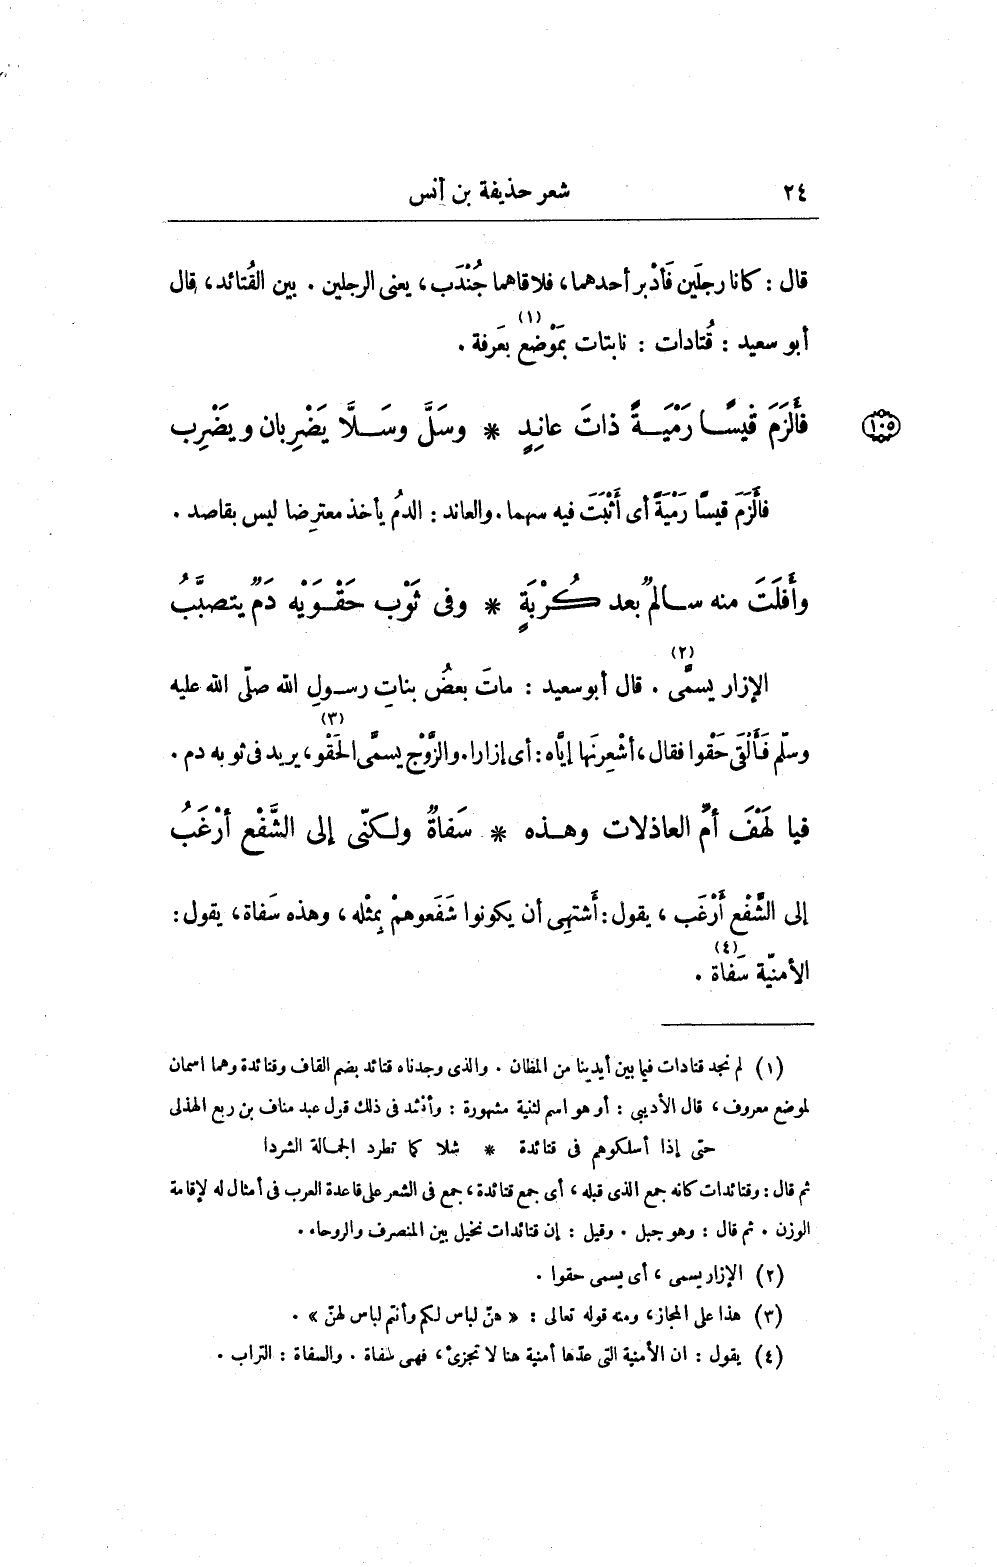 ٢٤ شعر حذيفة بن أنس
قال : كانا رجلَين فَأَدْبر أحدهما، فلاقاهما جُنْدَب، يعنى الرجلين . بين القُتائد، قال
أبو سعيد : قُتادات : نابتات بَمَوْضع (١) بعَرفة .
فأَلزَمَ قيسًا رَمْيَةً ذاتَ عانِدٍ * وسَلَّ وسَلَّا يَضْرِبان ويَضْرِب
١٠٥
فأَلزَمَ قيسًا رَمْيَةً أى أَثْبَتَ فيه سهما . والعاند : الدمُ يأخذ معترِضا ليس بقاصد .
وأَفلَتَ منه سالمٌ بعد كُرْبَةٍ * وفى ثَوْب حَقْوَيْه دَمٌ يتصبَّبُ
الإزار يسمَّى (٢) . قال أبو سعيد : ماتَ بعضُ بناتِ رسولِ الله صلّى الله عليه
وسلّم فَأَلْقَى حَقْوا فقال، أَشْعِرنَها إيّاه : أى إزارا . والزَّوْج يسمَّى الحَقْو (٣)، يريد فى ثوبه دم .
فيا لَهْفَ أمِّ العاذلات وهذه * سَفاةٌ ولكنّى إلى الشَّفْع أرْغَبُ
إلى الشَّفْع أَرْغَب ، يقول : أَشتهِى أن يكونوا شَفَعوهمْ بمِثْله ، وهذه سَفاة، يقول :
الأمنيّة سَفاة (٤) .
(١) لم نجد قتادات فيما بين أيدينا من المظان . والذى وجدناه قتائد بضم القاف وقتائدة وهما اسمان
لموضع معروف ، قال الأديبى : أو هو اسم لثنية مشهورة : وأنشد فى ذلك قول عبد مناف بن ربع الهذلى
حتى إذا أسلكوهم فى قتائدة * شلا كما تطرد الجمالة الشردا
ثم قال : وقتائدات كأنه جمع الذى قبله ، أى جمع قتائدة ، جمع فى الشعر على قاعدة العرب فى أمثال له لإقامة
الوزن . ثم قال : وهو جبل . وقيل : إن قتائدات نخيل بين المنصرف والروحاء .
(٢) الإزار يسمى ، أى يسمى حقوا .
(٣) هذا على المجاز، ومنه قوله تعالى : « هنّ لباس لكم وأنتم لباس لهنّ » .
(٤) يقول : ان الأمنية التى عدّها أمنية هنا لا تجزئ ، فهى سفاة . والسفاة : التراب .